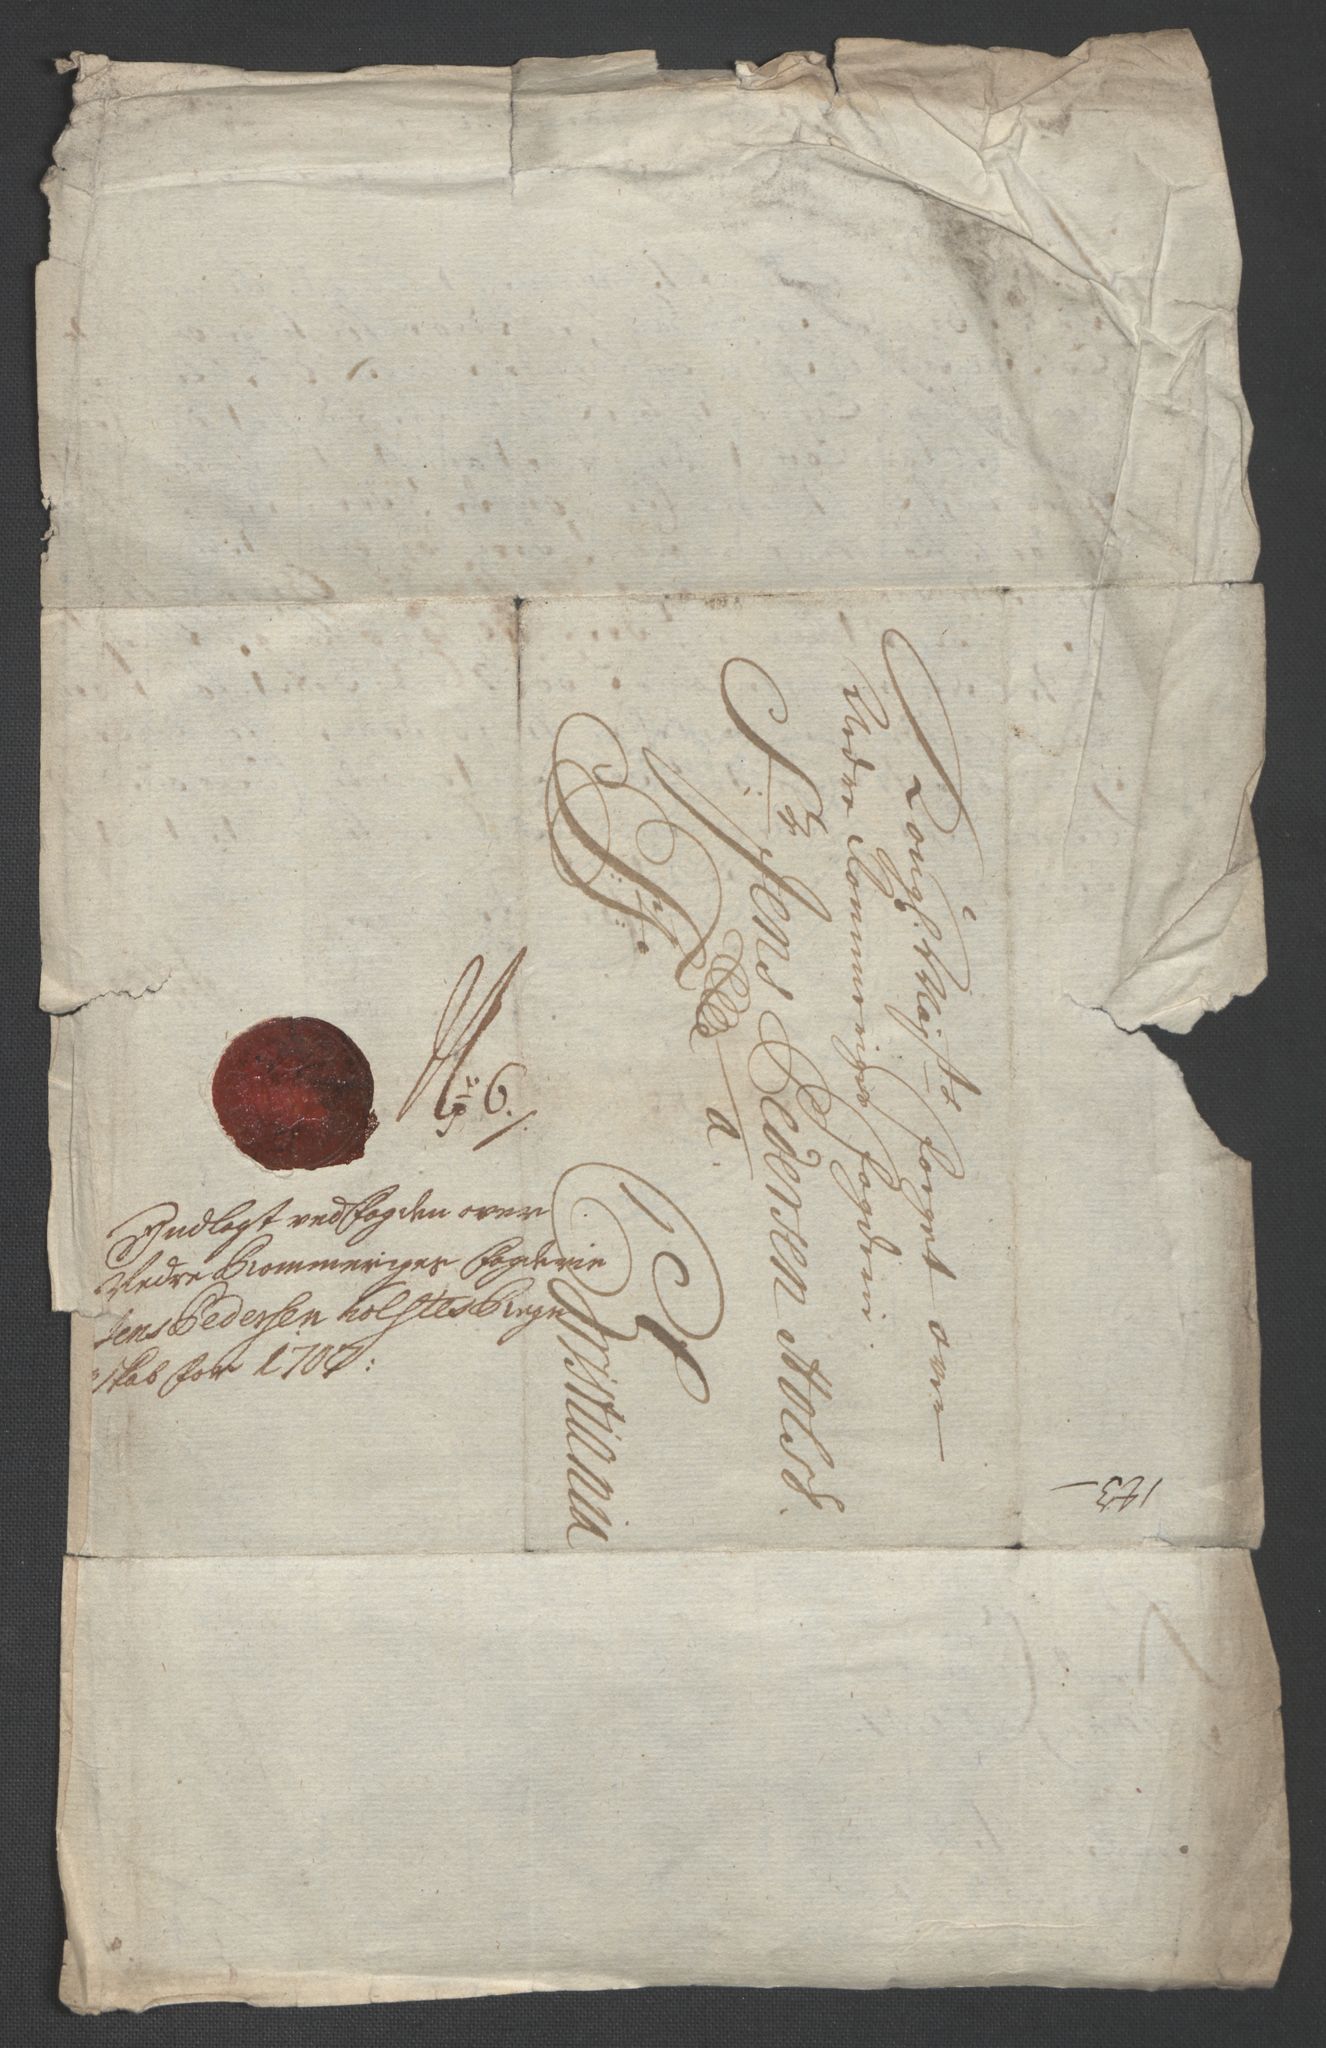 Kongl: Maÿsts foeget over
Nedre Rommeriges fogderi.
Sr Jens Pedersen Holst.
a
Cristiania
No 6.
Indlagt ved fogden over
Nedre Rommeriges fogderie
Jens Pedersen Holstes Regn
skab for 1707:
123